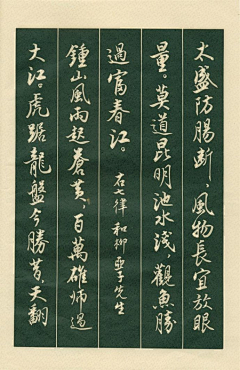 太盛防腸斷、風物長宜放眼
量。莫道昆明池水淺，觀魚勝
過富春江。
右七律 和柳亞子先生
鍾山風雨起蒼黃，百萬雄師過
大江。虎踞龍盤今勝昔，天翻